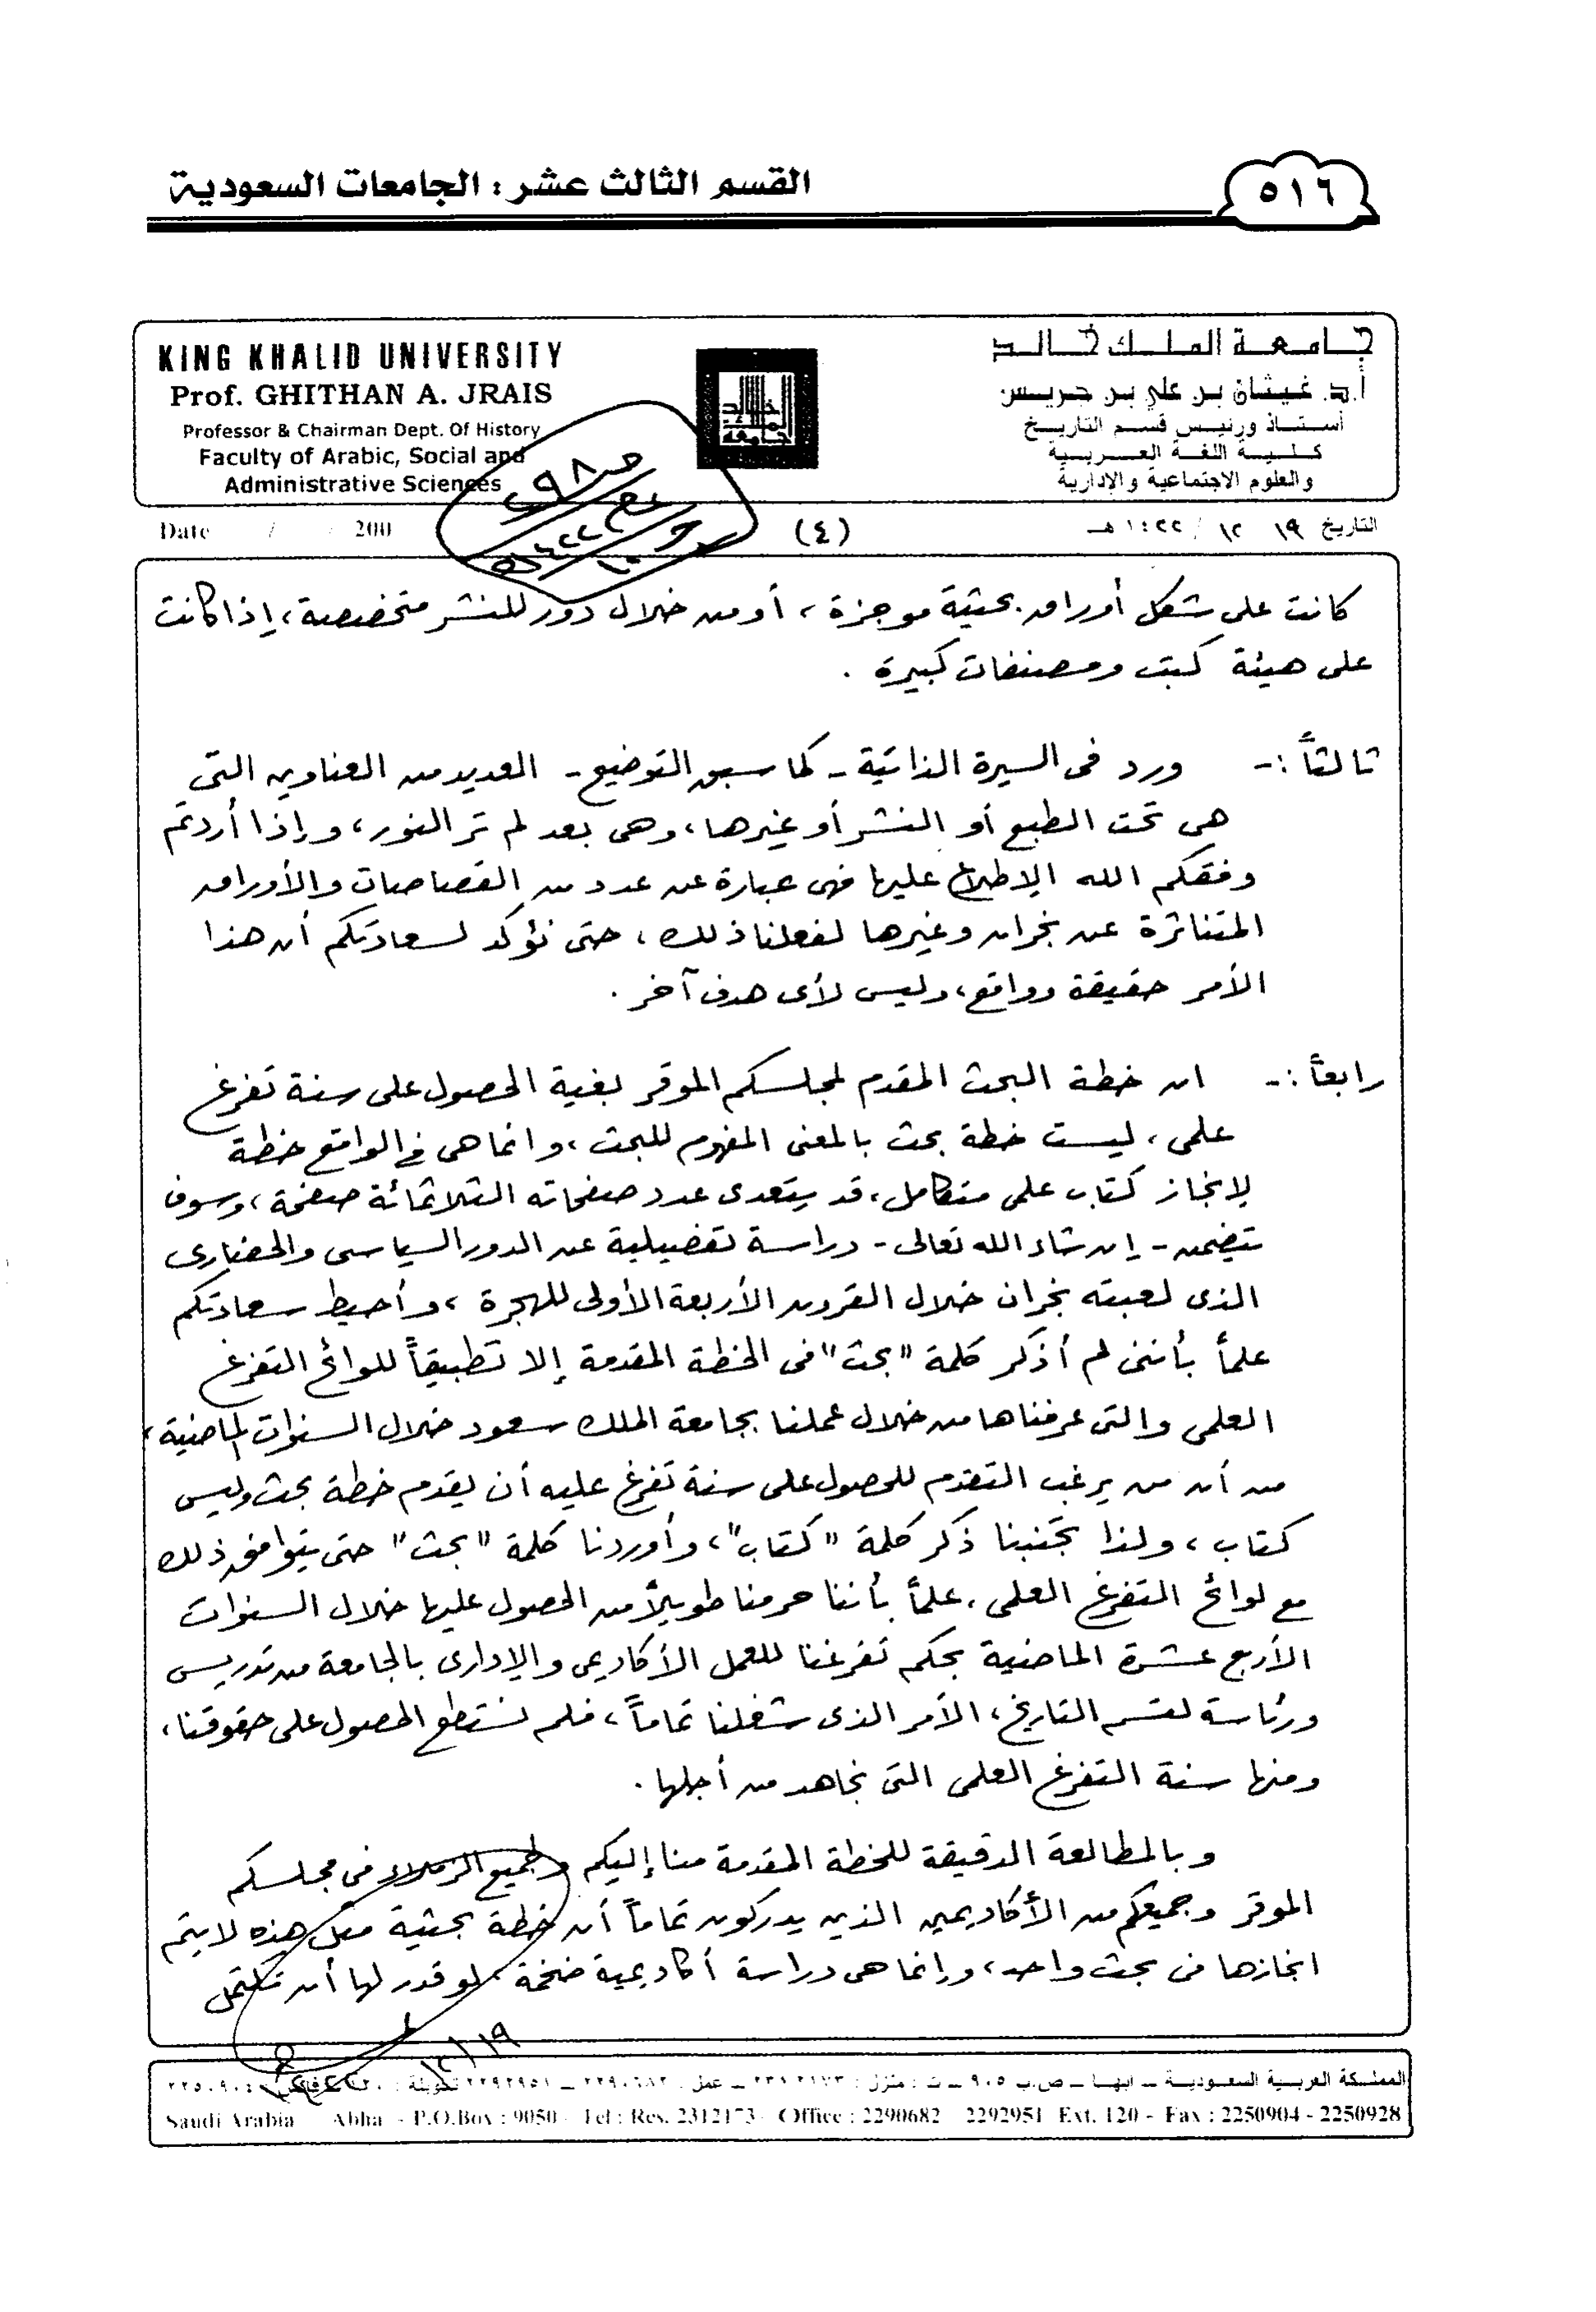 ٥١٦
القسم الثالث عشر : الجامعات السعودية
جامعة الملك خالد
أ.د. غيثان بن علي بن جريس
أستاذ ورئيس قسم التاريخ
كلية اللغة العربية
والعلوم الاجتماعية والإدارية
KING KHALID UNIVERSITY
Prof. GHITHAN A. JRAIS
Professor & Chairman Dept. Of History
Faculty of Arabic, Social and
Administrative Sciences
التاريخ ١٩ / ١٢ / ١٤٢٢ هـ
(٤)
Date / / 200
كانت على شكل أوراق بحثية موجزة ، أو من خلال دور للنشر متخصصة ، إذا كانت
على هيئة كتب ومصنفات كبيرة .
ثالثاً :- ورد في السيرة الذاتية - كما سبق التوضيح - العديد من العناوين التي
هي تحت الطبع أو النشر أو غيرها ، وهي بعد لم تر النور ، وإذا أردتم
وفقكم الله الإطلاع عليها فهي عبارة عن عدد من القصاصات والأوراق
المتناثرة عن نجران وغيرها لفعلنا ذلك ، حتى نؤكد لسعادتكم أن هذا
الأمر حقيقة وواقع ، وليس لأي هدف آخر .
رابعاً :- ان خطة البحث المقدم لمجلسكم الموقر بغية الحصول على سنة تفرغ
علمي ، ليست خطة بحث بالمعنى المفهوم للبحث ، وانما هي في الواقع خطة
لإنجاز كتاب علمي متكامل ، قد يتعدى عدد صفحاته الثلاثمائة صفحة ، وسوف
يتضمن - إن شاء الله تعالى - دراسة تفصيلية عن الدور السياسي والحضاري
الذي لعبته نجران خلال القرون الأربعة الأولى للهجرة ، وأحيط سعادتكم
علماً بأنني لم أذكر كلمة "بحث" في الخطة المقدمة إلا تطبيقاً للوائح التفرغ
العلمي والتي عرفناها من خلال عملنا بجامعة الملك سعود خلال السنوات الماضية ،
من أن من يرغب التقدم للحصول على سنة تفرغ عليه أن يقدم خطة بحث وليس
كتاب ، ولذا تجنبنا ذكر كلمة "كتاب" ، وأوردنا كلمة "بحث" حتى يتوافق ذلك
مع لوائح التفرغ العلمي ، علماً بأننا حرمنا طويلاً من الحصول عليها خلال السنوات
الأربع عشرة الماضية بحكم تفرغنا للعمل الأكاديمي والإداري بالجامعة من تدريس
ورئاسة لقسم التاريخ ، الأمر الذي شغلنا تماماً ، فلم نستطع الحصول على حقوقنا ،
ومنها سنة التفرغ العلمي التي نجاهد من أجلها .
وبالمطالعة الدقيقة للخطة المقدمة منا إليكم ولجميع الزملاء في مجلسكم
الموقر وجميعكم من الأكاديميين الذين يدركون تماماً أن خطة بحثية مثل هذه لا يتم
انجازها في بحث واحد ، وإنما هي دراسة أكاديمية ضخمة ، لو قدر لها أن تكتمل
١٢/١٩
المملكة العربية السعودية – ابها – ص.ب ٩٠٥٠ – ت : منزل : ٢٣١٢١٧٣ – عمل : ٢٢٩٠٦٨٢ – ٢٢٩٢٩٥١ تحويلة : ١٢٠
Saudi Arabia Abha - P.O.Box : 9050 - Tel : Res. 2312173 Office : 2290682 2292951 Ext. 120 - Fax : 2250904 - 2250928